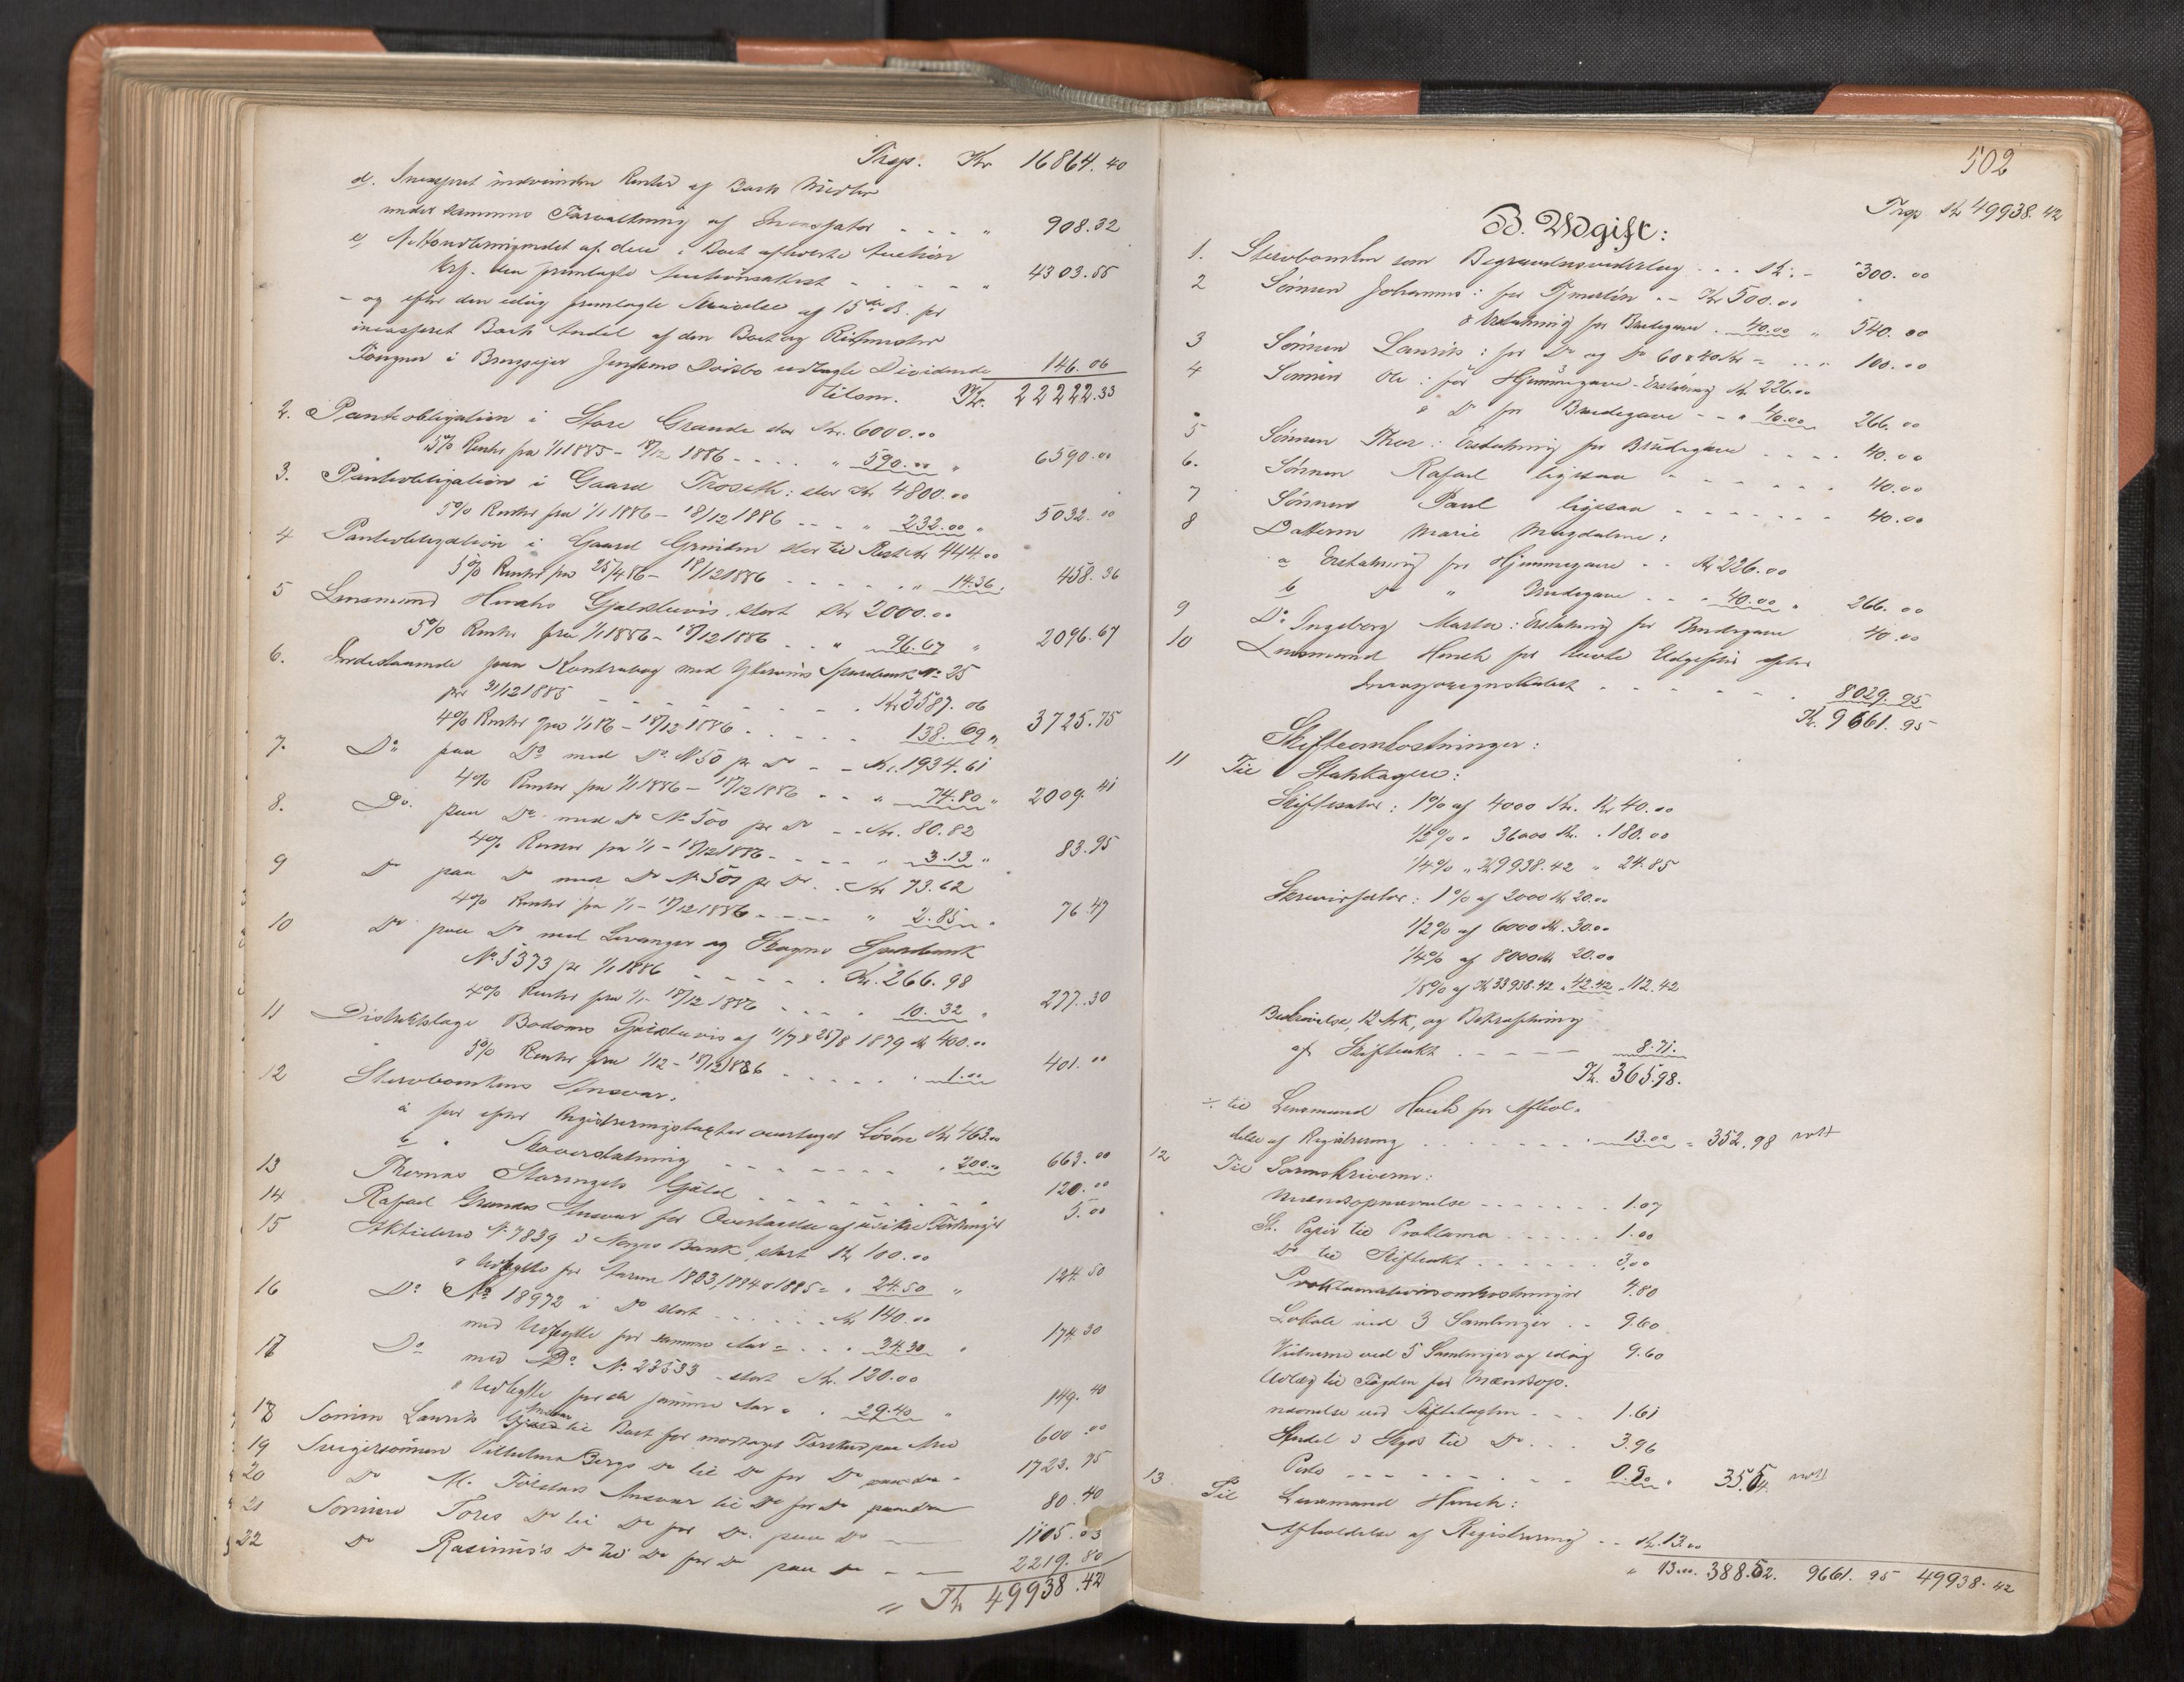 Trsp. Kr 16864.40
d. Incasseret indvundne Renter af Boets Midler
under sammes Forvaltning af Incassator - - - - " 908.32
e, Nettoudbringendet af den i Boet afholdte Auktion
ktf. den fremlagte Auktionsattest - - - - - " 4303.55
- og efter den idag fremlagte Anviselse af 15de ds. for
incasseret Boets Andel af den Boet og Ritmester
Dividende 146.06
tilsm. Kr. 22222.33
2. Panteobligation i Store Grande stor Kr. 6000.00
5% Renter fra 1/1 1885 - 18/12 1886 - - - - " 590.00 " 6590.00
3. Panteobligation i Gaard Troseth: stor Kr 4800.00
5% Renter fra 1/1 1886 - 18/12 1886 - - - " 232.00 " 5032.00
4 Panteobligation i Gaard Grinden stor til Rest Kr 444.00
5% Renter fra 25/4 86 - 18/12 1886 - - - - - " 14.36. 458.36
5 Lensmand Hinchs Gjældsbevis, stort Kr 2000.00
5% Renter fra 1/1 1886 - 18/12 1886 - - " 96.67 " 2096.67
6. Indestaaende paa Kontrabog med Ytterøens Sparebank No 25
pr 31/12 1885 - - - - - - - - Kr 3587.06
4% Renter fra 1/1 86 - 18/12 1886 - - - - - 138.69 " 3725.75
7. Do paa Do med Do No 50 pr Do - - Kr. 1934.61
4% Renter fra 1/1 1886 - 18/12 1886 - - " 74.80 " 2009.41
8. Do. paa Do. med Do No 500 pr Do - - Kr. 80.82
4% Renter fra 1/1 - 18/12 1886 - - - - " 3.13 " 83.95
9 Do paa Do med Do No 501 pr Do. - Kr 73.62
4% Renter fra 1/1 - 18/12 1886 - - - - " 2.85 " 76.47
10 Do paa Do med Levanger og Skogns Sparebank
No 5373 pr 1/1 1886 - - - - - Kr. 266.98
4% Renter fra 1/1 - 18/12 1886 - - - - 10.32 " 277.30
11 Distriktslæge Bodoms Gjældsbevis af 11/7 & 25/8 1879 Kr 400.00
5% Renter fra 1/12 - 18/12 1886 - - - - - 1.00 401.00
12 Stervboenkens Ansvar:
a for efter Registreringstaxten overtaget Løsøre Kr 463.00
b " Aaboverstatning - - - - - - - - " 200.00 663.00
13 Thomas Staringeths Gjæld - - - - - - - - 120.00
14 Rafael Grandes Ansvar for Overtagelse af usikre Fordringer 5.00
15 Aktiebrev No 7839 i Norges Bank, stort Kr 100.00
& Udbytte for Aarene 1883, 1884 & 1885 = . 24.50 " 124.50
16 Do No 18972 i Do stort - - - - - Kr 140.00
med Udbytte for samme Aar = . . . 34.30 " 174.30
17 Do med Do No 23533 - stort Kr. 120.00
& Udbytte for de samme Aar = . 29.40 " 149.40
18 Sønnen Lauritz Ansvar til Boet for modtaget Forskud paa Arv 600.00
19 Svigersønnen Vilhelm Bergs Do til Do for Do paa Do - 1723.75
20 Do M. Tolstads Ansvar til Do for Do paa Do 80.40
21 Sønnen Tores Do til Do for Do. paa Do - 1105.03
22 Do Rasmus's Do til Do for Do paa Do - - 2219.80
" Kr 49938.42
502
Trsp Kr 49938.42
B. Udgift:
1. Stervboenken som Begravelsesvederlag . . . Kr. - 300.00
2 Sønnen Johannes: for Tjeneste - - Kr 500.00
& Erstatning for Brudegave . 40.00 " 540.00
3 Sønnen Lauritz: for Do og Do 60 & 40 Kr = . . . 100.00
4 Sønnen Ole: for Hjemmegave-Erstatning Kr 226.00
& Do for Brudegave - - " 40.00 266.00
5 Sønnen Thor: Erstatning for Brudegave . . . . 40.00
6. Sønnen Rafael ligesaa - - - - - - 40.00
7 Sønnen Paul ligesaa - - - - - - - 40.00
8 Datteren Marie Magdalene:
a Erstatning for Hjemmegave - - Kr 226.00
b Do " Brudegave - - " 40.00 " 266.00
9 Do Ingeborg Marta: Erstatning for Brudegave 40.00
10 Lensmand Hinch for havte Udgifter efter
Incassoregnskabet - - - - - - - 8029.95
Kr. 9661.95
Skifteomkostninger:
11 Til Statskassen:
Skiftesalær: 1% af 4000 Kr. Kr 40.00
1/2% " 36000 Kr. " 180.00
1/4% " Kr 9938.42 " 24.85
Skriversalær: 1% af 2000 Kr 20.00
1/2% af 6000 Kr. 30.00
1/4% af 8000 Kr 20.00
1/8% af Kr 33938.42 " 42.42 " 112.42
Beskrivelse, 12 Ark, og Bekræftning
af Skifteakt - - - - - 8.71.
Kr. 365.98.
÷ til Lensmand Hinch for Afhol-
delse af Registrering - - - - - - - 13.00 = 352.98
12 Til Sorenskriveren:
Mændsopnævnelse - - - - - - 1.07
St. Papir til Proklama - - - - - 1.00
Do til Skifteakt - - - - - - 3.00
Proklamationsomkostninger 4.80
Lokale ved 3 Samlinger - - 9.60
Vidnerne ved 5 Samlinger og idag 9.60
Udlæg til Fogden for Mændsop-
nævnelse ved Skiftetaxten - - - 1.61
Andel i Skyds til Do. - - - 3.96
Porto - - - - - - - 0.90 " 35.54
13 Til Lensmand Hinch:
Afholdelse af Registrering - - Kr. 13.00
" 13.00. 388.52. 9661.95 49938.42